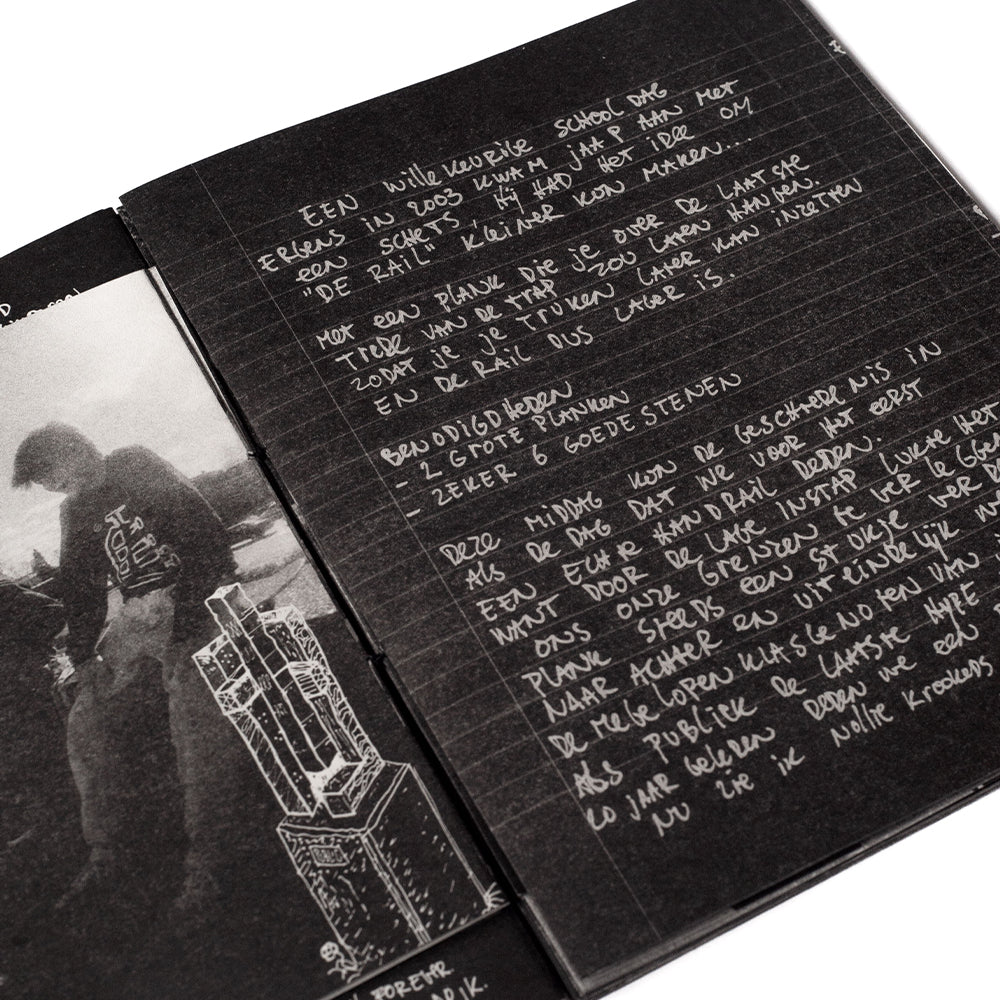 EEN WILLEKEURIGE SCHOOLDAG
ERGENS IN 2003 KWAM JAAP AAN MET
EEN SCHETS. HIJ HAD HET IDEE OM
"DE RAIL" KLEINER KON MAKEN...
MET EEN PLANK DIE JE OVER DE LAATSTE
TREDE VAN DE TRAP ZOU LATEN HANGEN.
ZODAT JE JE TRUKEN LATER KAN INZETTEN
EN DE RAIL DUS LAGER IS.
BENODIGDHEDEN
- 2 GROTE PLANKEN
- ZEKER 6 GOEDE STENEN
DEZE MIDDAG KON DE GESCHIEDENIS IN
ALS DE DAG DAT WE VOOR HET EERST
EEN ECHTE HANDRAIL DEDEN.
WANT DOOR DE LAGE INSTAP LUKTE HET
ONS ONZE GRENZEN TE VERLEGGEN
STEEDS EEN STUKJE VERDER
PLANK NAAR ACHTER EN UITEINDELIJK
DE MEEGELOPEN KLASGENOTEN VAN
ALS PUBLIEK DE LAATSTE HYPE
20 JAAR GELEDEN DEDEN WE EEN
NU ZIE IK NOLLIE KROOKEDS
FOREVER